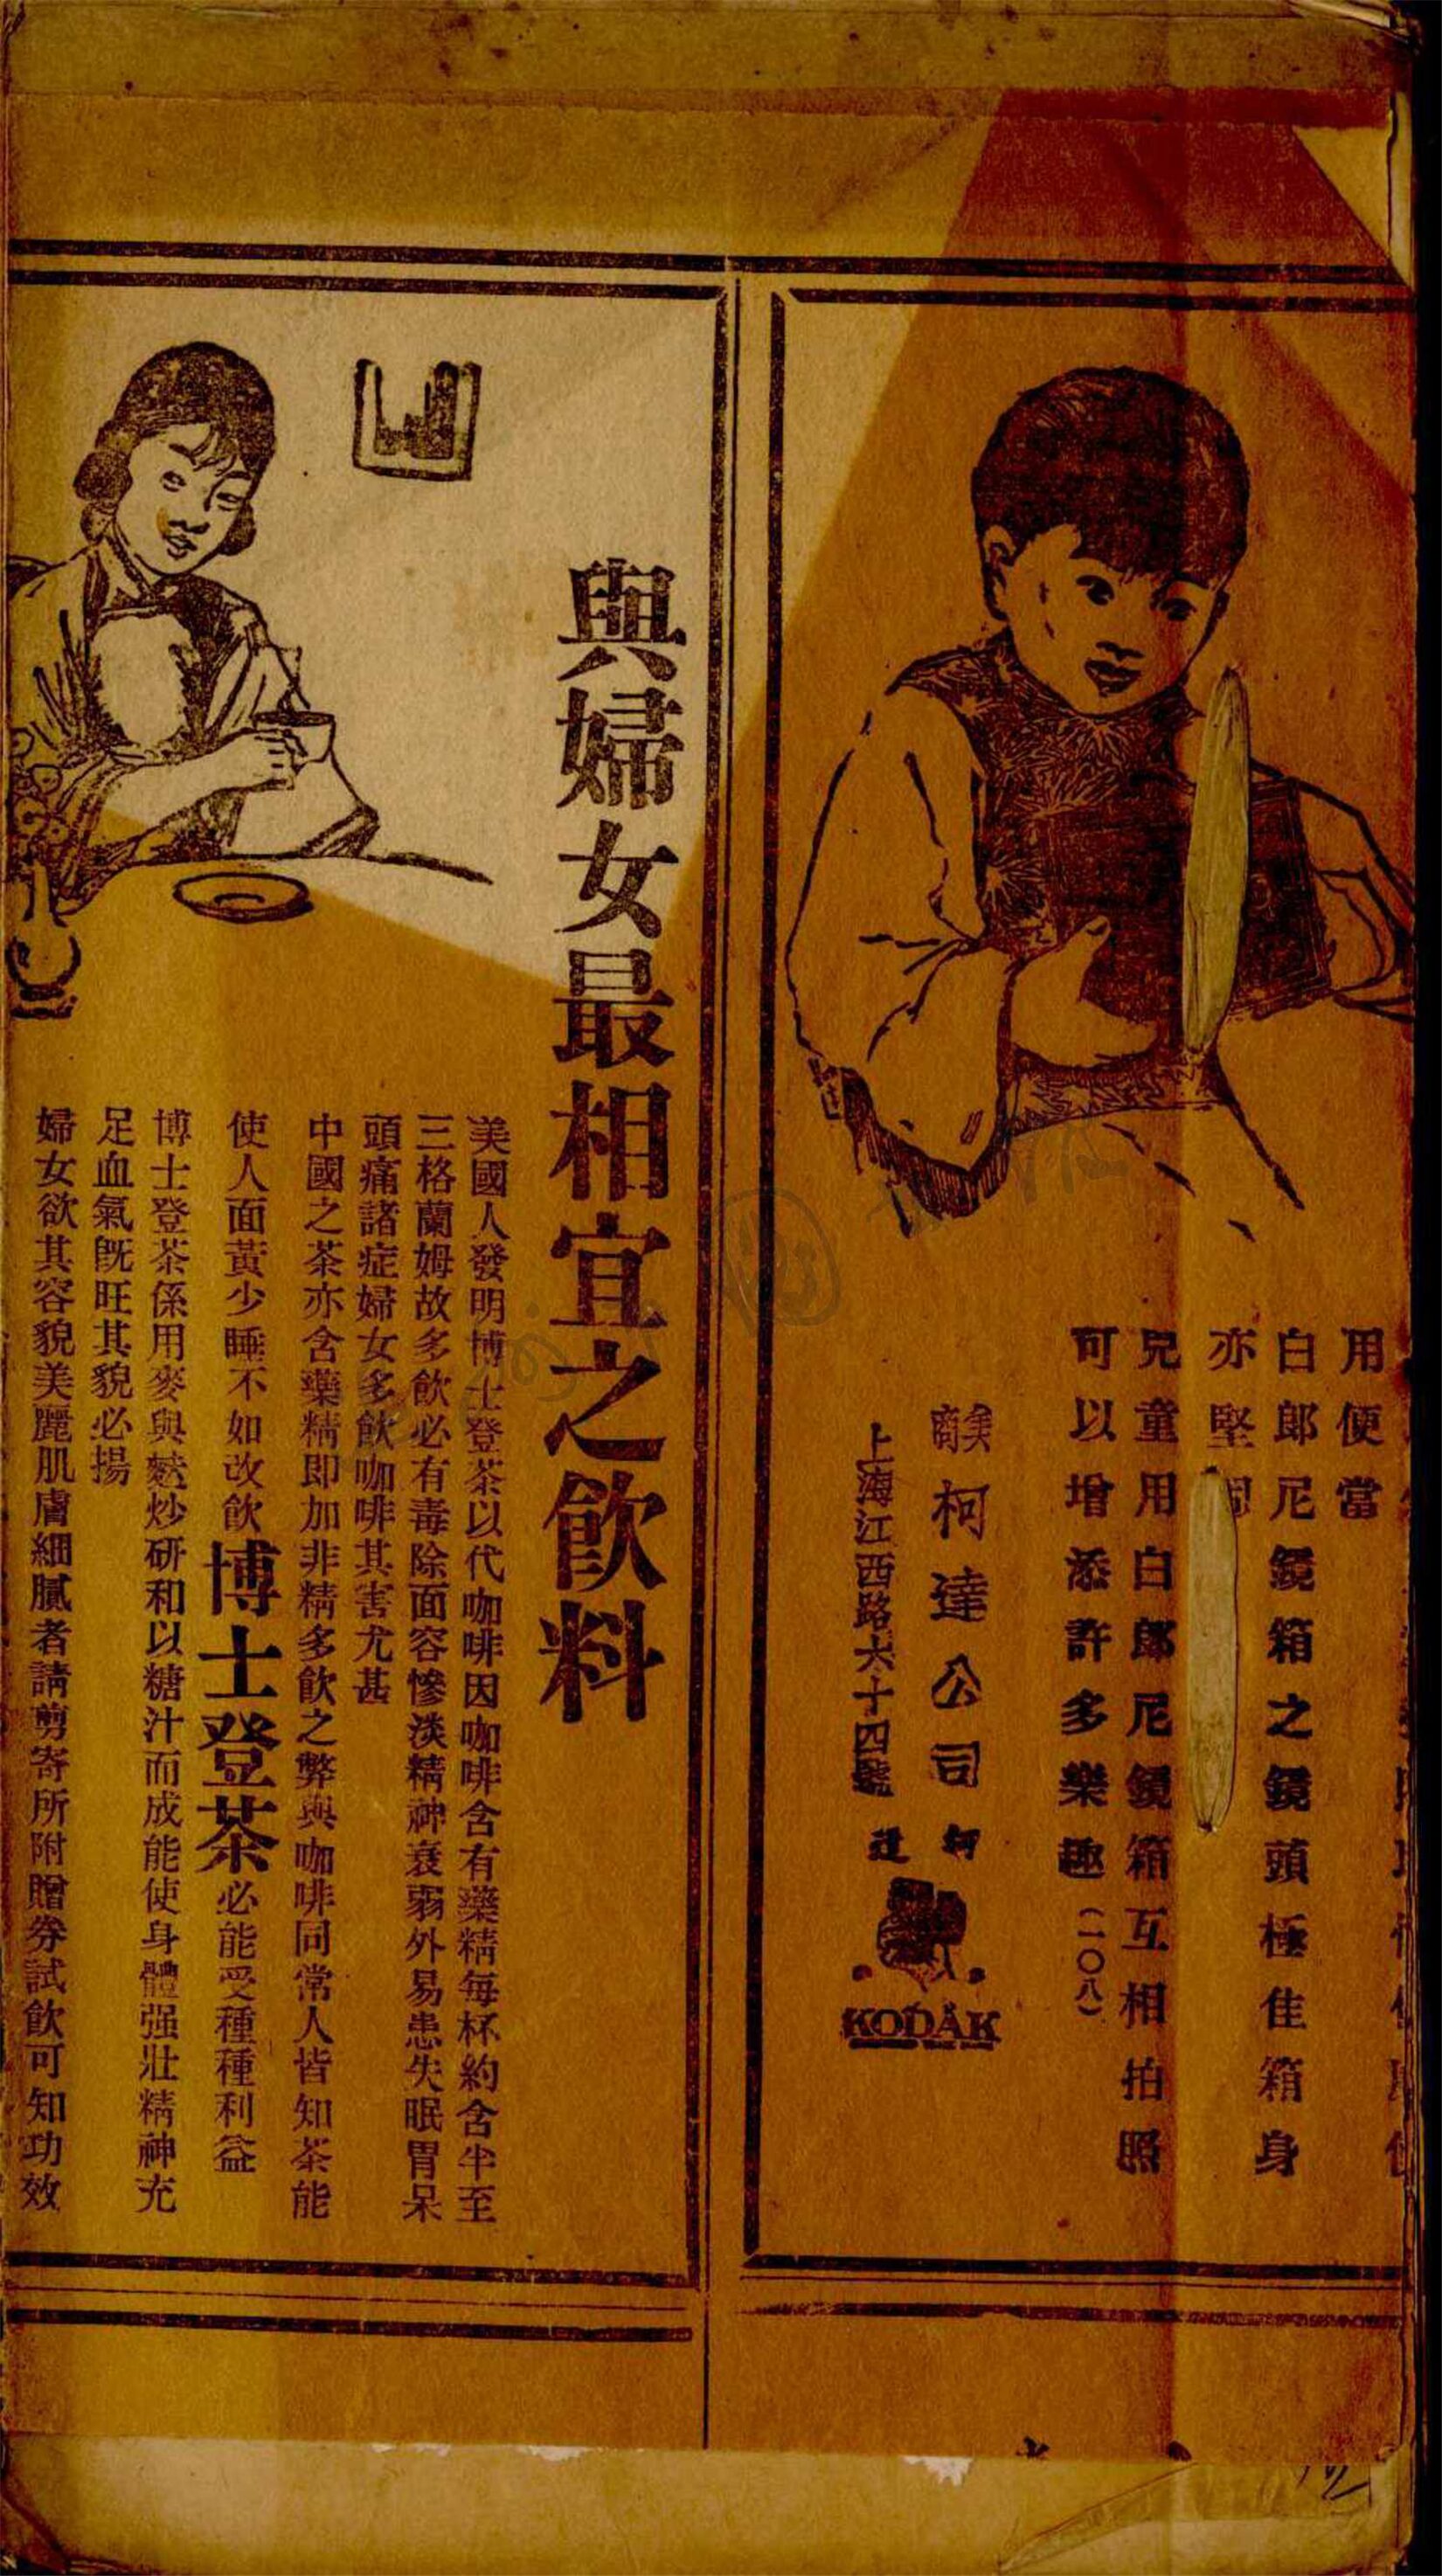 用便當
白郎尼鏡箱之鏡頭極佳箱身
亦堅固
兒童用白郎尼鏡箱互相拍照
可以增添許多樂趣(一〇八)
美商
柯達公司
上海江西路六十四號
柯達
KODAK
與婦女最相宜之飲料
美國人發明博士登茶以代咖啡因咖啡含有藥精每杯約含半至
三格蘭姆故多飲必有毒除面容慘淡精神衰弱外易患失眠胃呆
頭痛諸症婦女多飲咖啡其害尤甚
中國之茶亦含藥精即加非精多飲之弊與咖啡同常人皆知茶能
使人面黃少睡不如改飲博士登茶必能受種種利益
博士登茶係用麥與麩炒研和以糖汁而成能使身體强壯精神充
足血氣旣旺其貌必揚
婦女欲其容貌美麗肌膚細膩者請剪寄所附贈券試飲可知功效